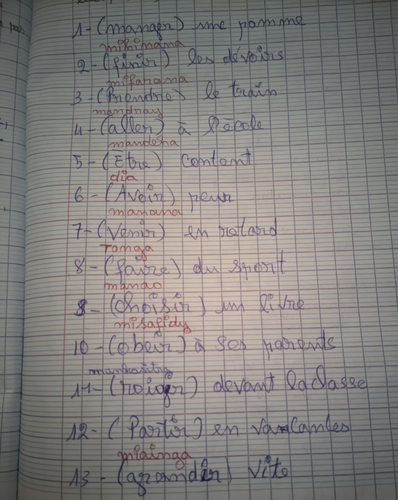 1-(manger) une pomme
mihinana
2-(finir) les devoirs
mifarana
3-(Prendre) le train
mandray
4-(aller) à l'école
mandeha
5-(Etre) content
dia
6-(Avoir) peur
manana
7-(Venir) en retard
tonga
8-(faire) du sport
manao
9-(choisir) un livre
misafidy
10-(obeir) à ses parents
11-devant la classe
12-(Partir) en
miainga
13-(grandir) vite